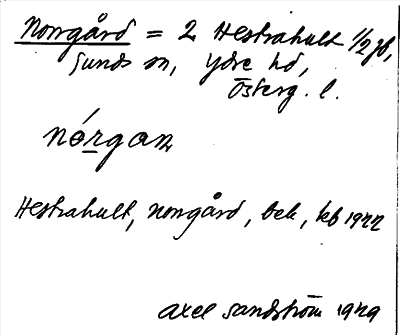 Norrgård = 2 Hestrahult 1/2 gb,
Sunds sn, Ydre hd,
Österg. l.
nórgan
Hestrahult, norrgård, bek, kb 1922
Axel Sandström 1929